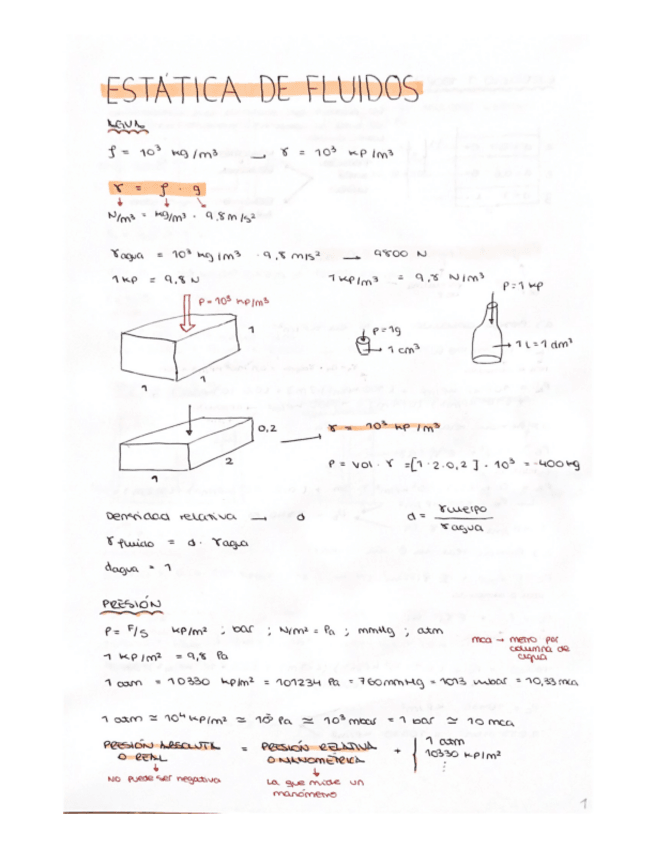 ESTÁTICA DE FLUIDOS
AGUA
ρ = 10³ kg/m³ → γ = 10³ kp/m³
γ = ρ · g
N/m³ = kg/m³ · 9,8 m/s²
γagua = 10³ kg/m³ · 9,8 m/s² → 9800 N
1 kp = 9,8 N 1 kp/m³ = 9,8 N/m³
P = 1 kp
P = 10³ kp/m³
1
P = 1g
1 cm³
1 L = 1 dm³
1
1
0,2
γ = 10³ kp/m³
2
P = vol · γ = [1·2·0,2] · 10³ = 400 kg
1
Densidad relativa → d d = γcuerpo / γagua
γ fluido = d · γagua
dagua = 1
PRESIÓN
P = F/S kp/m² ; bar ; N/m² = Pa ; mmHg ; atm
mca → metro por columna de agua
1 kp/m² = 9,8 Pa
1 atm = 10330 kp/m² = 101234 Pa = 760 mmHg = 1013 mbar = 10,33 mca
1 atm ≃ 10⁴ kp/m² ≃ 10⁵ Pa ≃ 10³ mbar = 1 bar ≃ 10 mca
PRESIÓN ABSOLUTA = PRESIÓN RELATIVA + { 1 atm
O REAL O MANOMÉTRICA 10330 kp/m²
⋮
No puede ser negativa La que mide un
manómetro
1